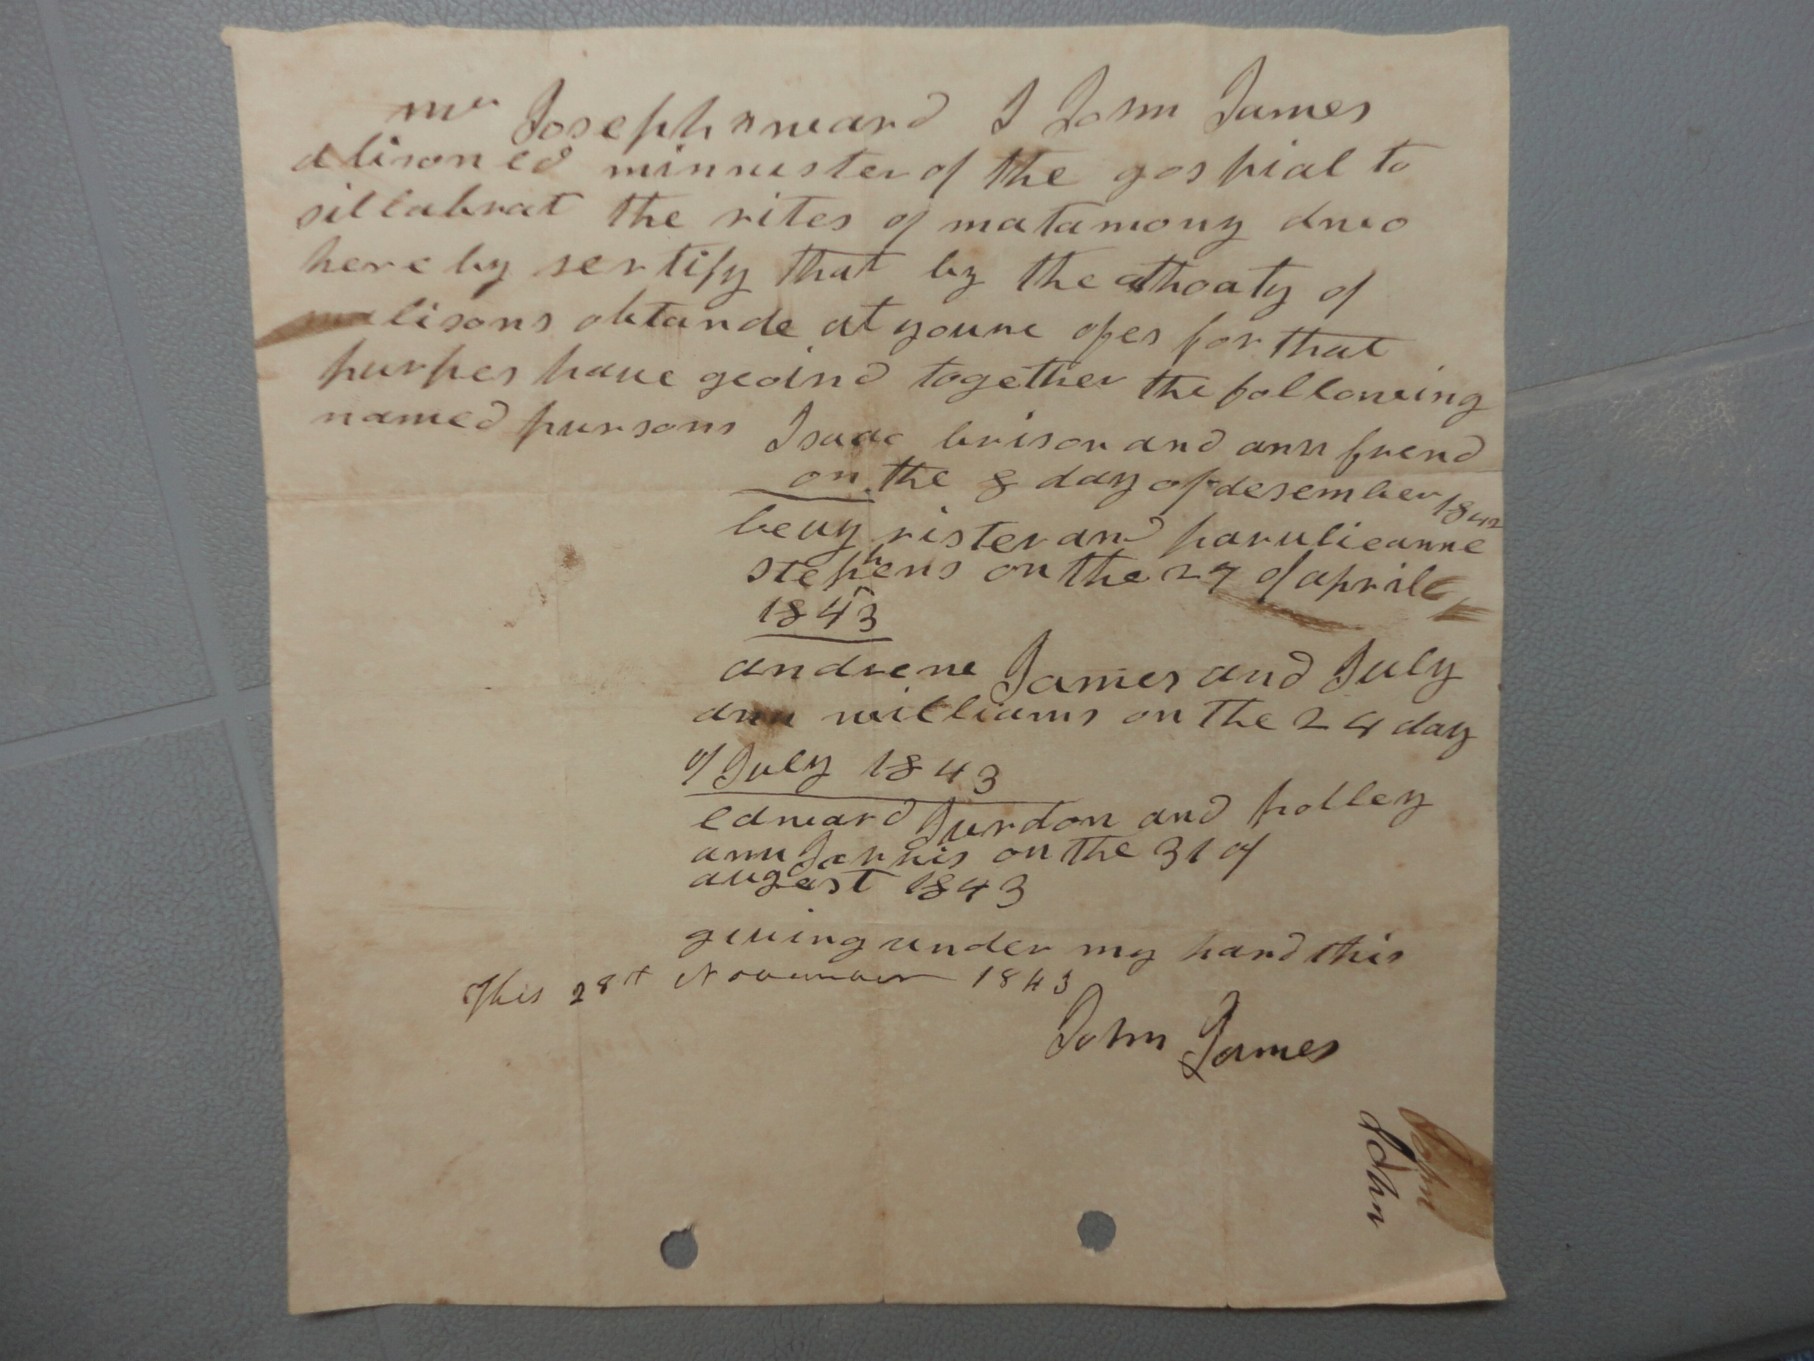 mr Joseph n ward I John James
a lisoned minnister of the gospial to
sillabrat the rites of matamony duo
here by sertify that by the athoaty of
lisons obtande at youre ofes for that
purpes have geoind together the following
named pursons Isaac brison and ann frend
on the 8 day of desember 1842
rister and
stephens on the 27 of april
1843
andrene James and July
ann williams on the 24 day
of July 1843
edward Jurdon and polley
ann on the 31 of
augest 1843
giuing under my hand this
This 28t November 1843
John James
John
John